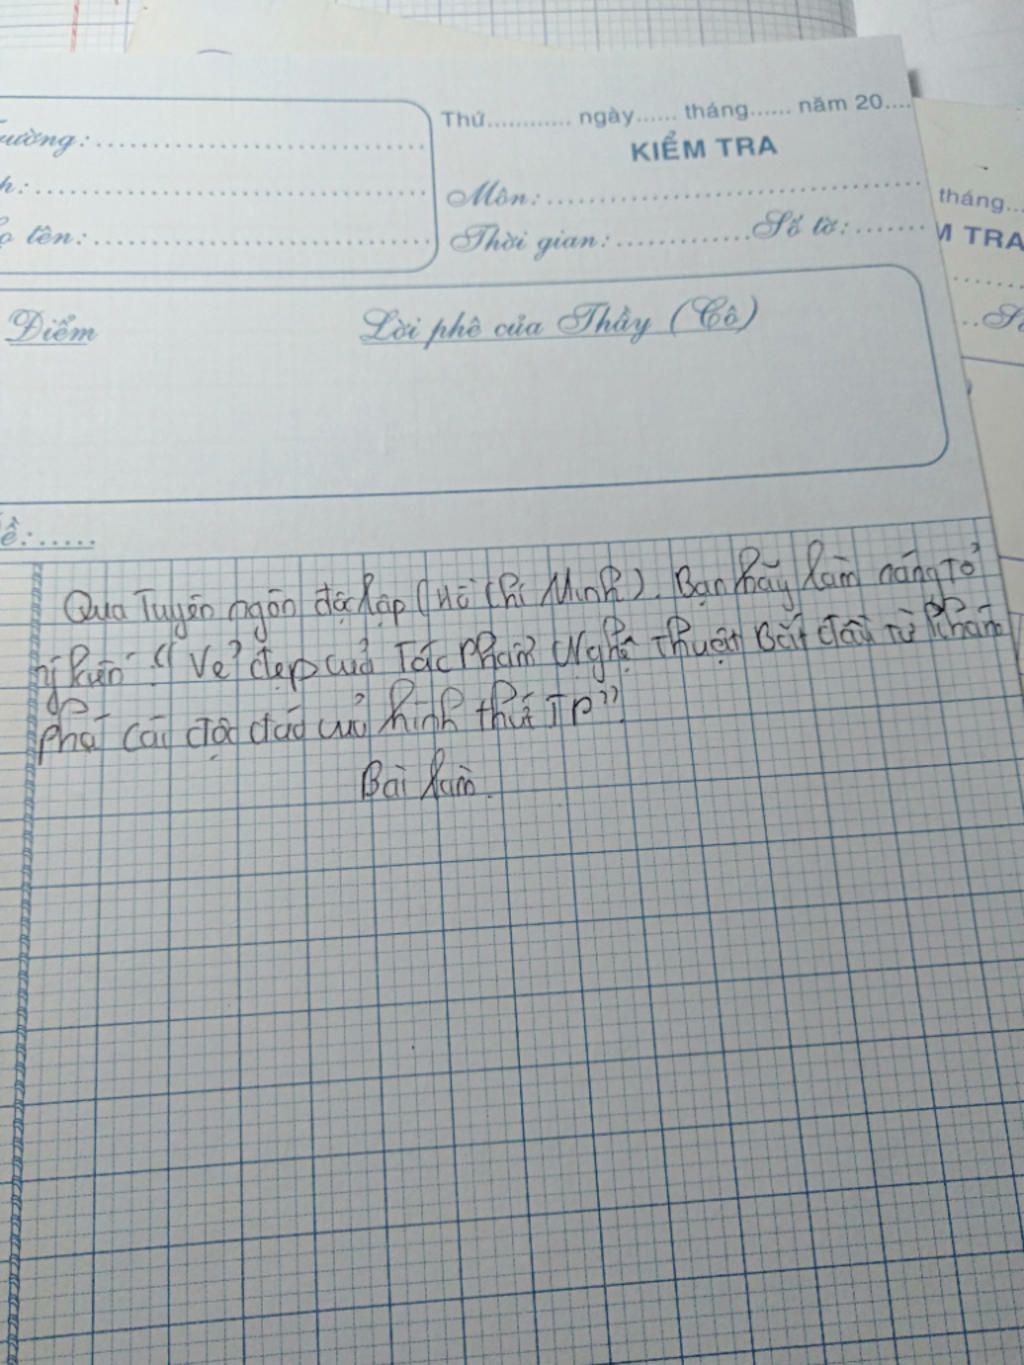 Thứ............ ngày...... tháng...... năm 20....
KIỂM TRA
ường:
Môn:
h:
Thời gian:.............Số tờ:.......
ọ tên:
tháng...
M TRA
Điểm
Lời phê của Thầy (Cô)
ề:.....
Qua Tuyên ngôn độc lập (Hồ Chí Minh). Bạn hãy làm sáng tỏ
ý kiến "Vẻ đẹp của Tác Phẩm Nghệ thuật Bắt đầu từ khám
phá cái độc đáo của hình thức TP"
Bài làm.